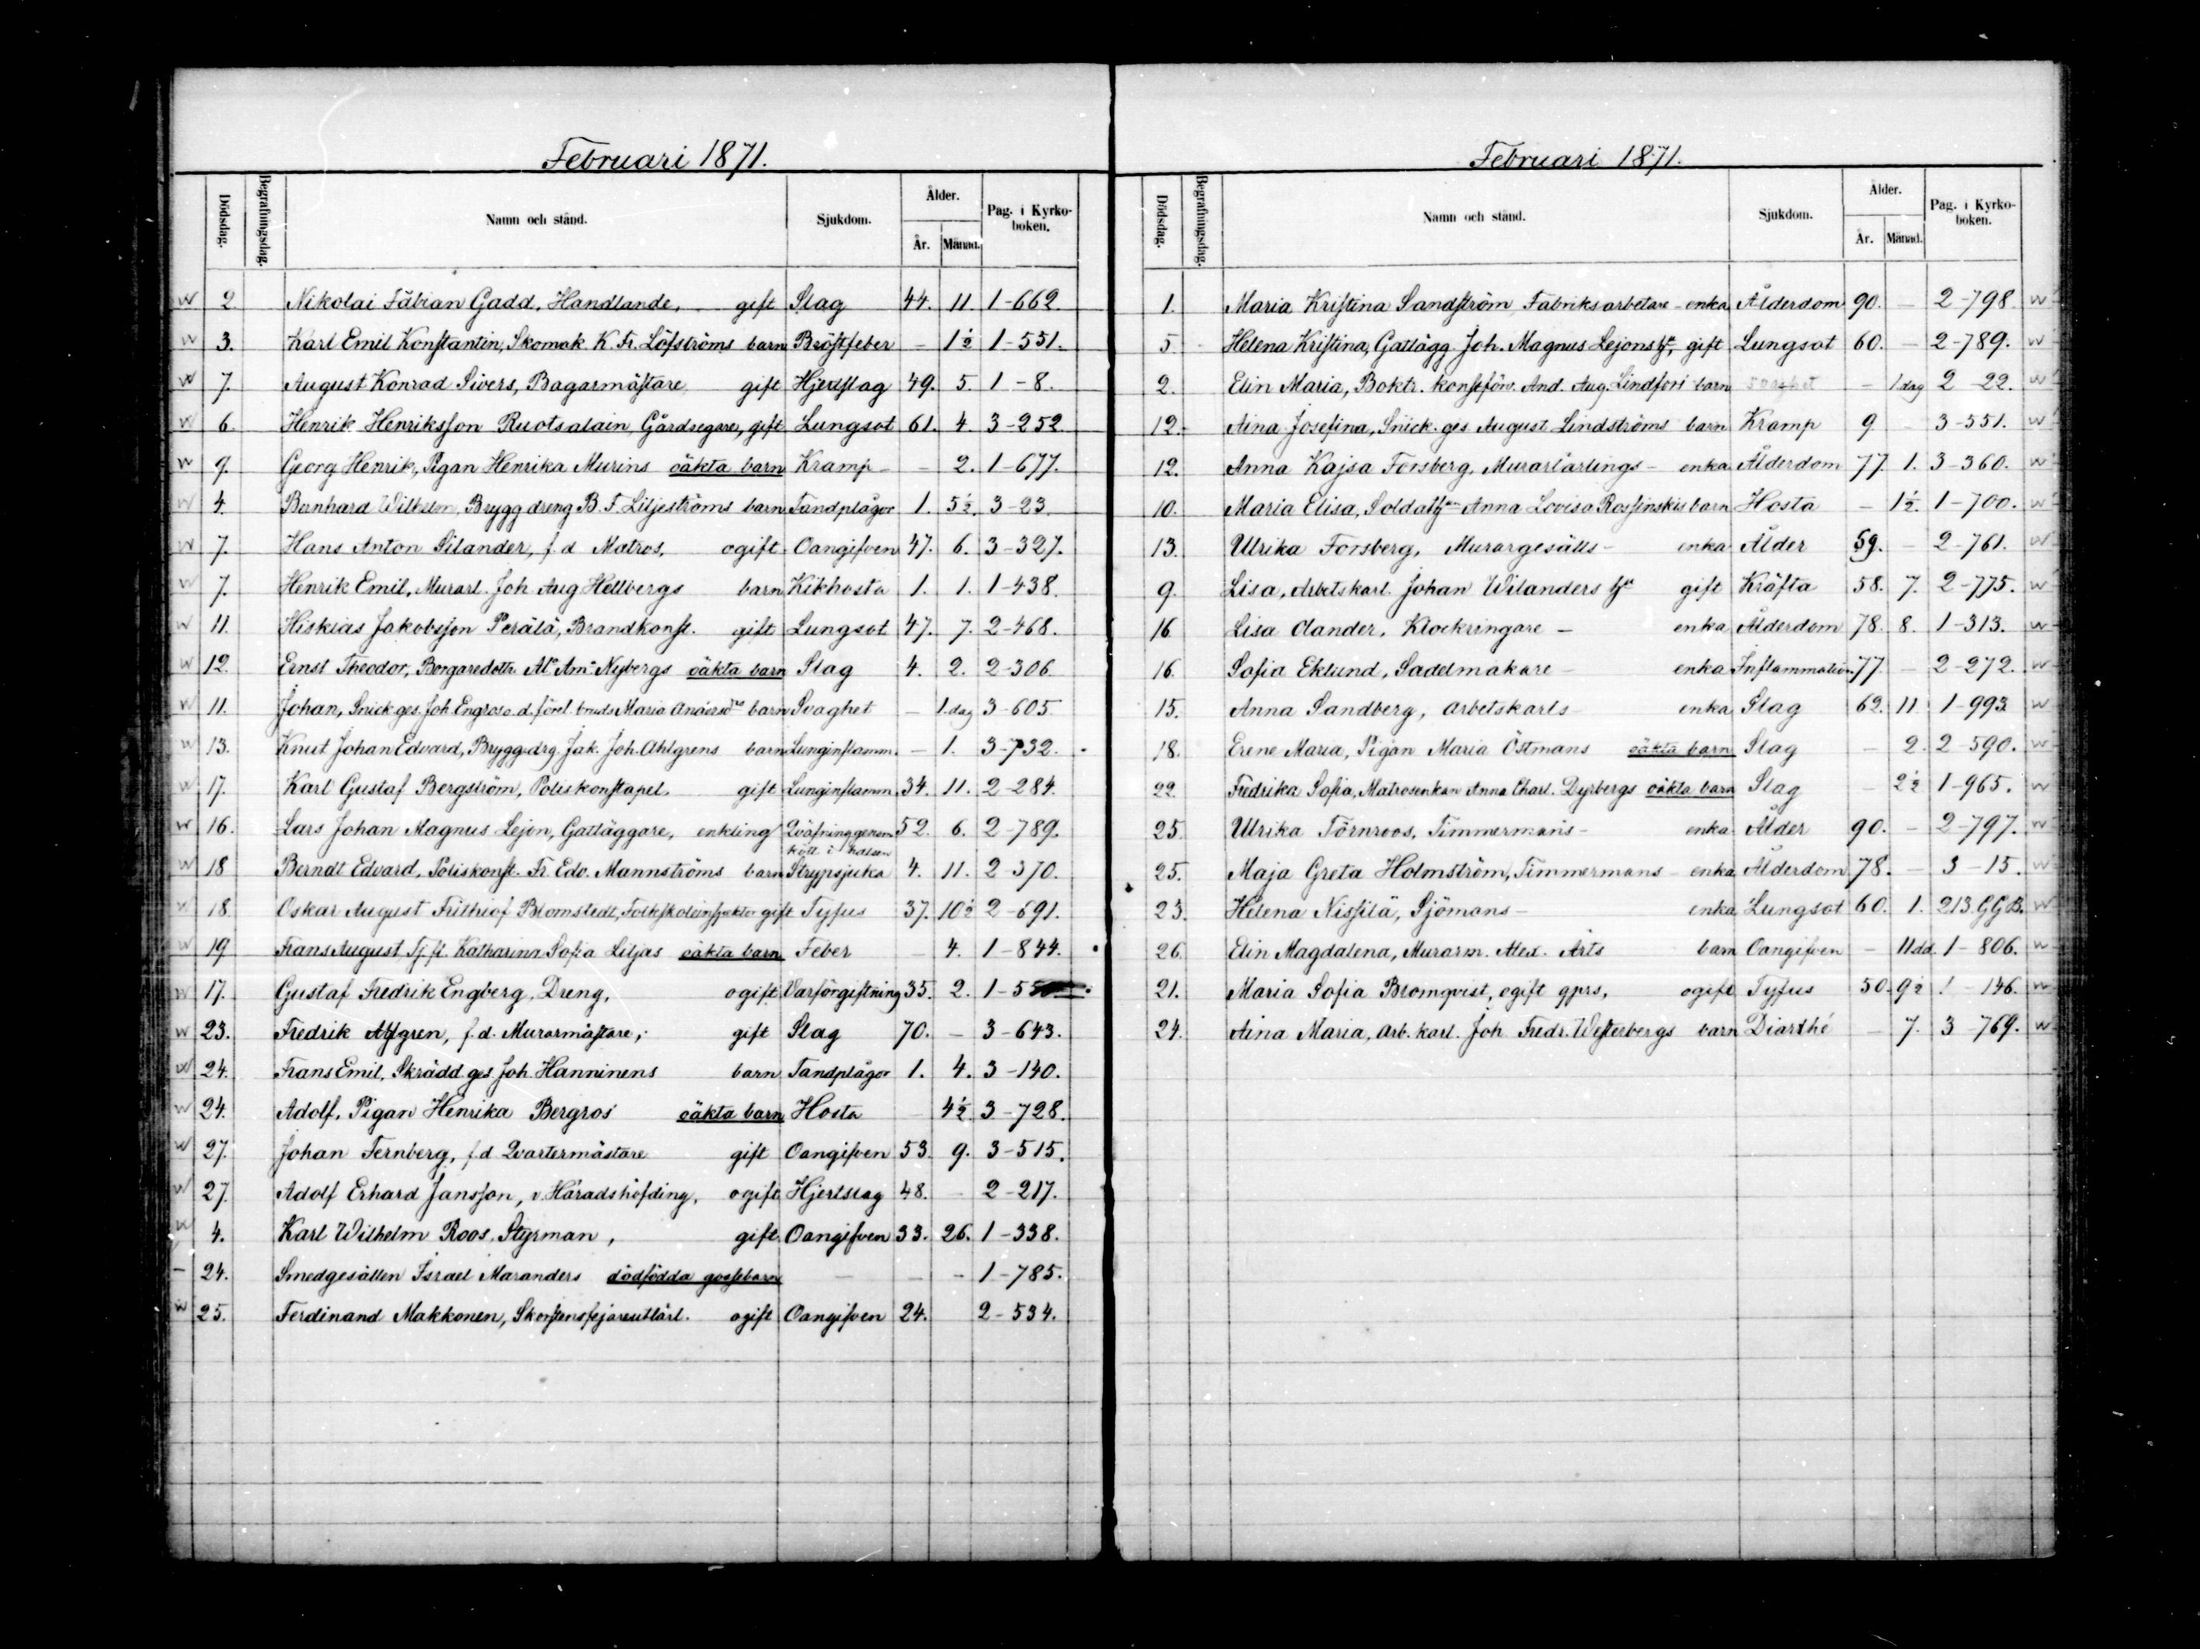 Februari 1871.
Dödsdag. Begrafningsdag. Namn och stånd. Sjukdom. Ålder. År. Månad. Pag. i Kyrko-boken.
w 2 Nikolai Fabian Gadd, Handlande, gift Slag 44. 11. 1-662.
w 3. Karl Emil Konstantin, Skomak. K. Fr. Löfströms barn Bröstfeber – 1½ 1-551.
w 7. August Konrad Sivers, Bagarmästare gift Hjertslag 49. 5. 1-8.
w 6. Henrik Henriksson Ruotsalain, Gårdsegare, gift Lungsot 61. 4. 3-252.
w 9. Georg Henrik, Pigan Henrika Murins oäkta barn Kramp – 2. 1-677.
w 4. Bernhard Wilhelm, Brygg dreng B. F. Liljeströms barn Tandplågor 1. 5½. 3-23.
w 7. Hans Anton Silander, f d Matros, ogift Oangifven 47. 6. 3-327.
w 7. Henrik Emil, Murarl. Joh. Aug Hellbergs barn Kikhosta 1. 1. 1-438.
w 11. Hiskias Jakobsson Perälä, Brandkonst. gift Lungsot 47. 7. 2-468.
w 12. Ernst Theodor, Borgaredottr. Ala Ama Nybergs oäkta barn Slag 4. 2. 2-306.
w 11. Johan, Snick. ges. Joh. Engros o. d. förel. bruds Maria barn Svaghet – 1. dag 3-605.
w 13. Knut Johan Edvard, Brygg.drg. Jak. Joh. Ahlgrens barn Lunginflamm. – 1. 3-732.
w 17. Karl Gustaf Bergström, Poliskonstapel, gift Lunginflamm. 34. 11. 2-284.
w 16. Lars Johan Magnus Lejon, Gatläggare, enkling Qväfning genom kött i halsen 52. 6. 2-789.
w 18 Berndt Edvard, Poliskonst. Fr. Edv. Mannströms barn Strypsjuka 4. 11. 2 370.
w 18. Oskar August Frithiof Blomstedt, Folkskoleinspektor gift Tyfus 37. 10½ 2-691.
w 19. Frans August, Tj. fl. Katharina Sofia Liljas oäkta barn Feber – 4. 1-844.
w 17. Gustaf Fredrik Engberg, Dreng, ogift Varförgiftning 35. 2. 1-55
w 23. Fredrik Ahlgren, f. d. Murarmästare, gift Slag 70. – 3-643.
w 24. Frans Emil, Skrädd. ges. Joh. Hanninens barn Tandplågor 1. 4. 3-140.
w 24. Adolf, Pigan Henrika Bergros' oäkta barn Hosta 4½. 3-728.
w 27. Johan Ternberg, f d Qvartermästare gift Oangifven 53. 9. 3-515.
w 27. Adolf Erhard Jansson, v. Häradshöfding, ogift Hjertslag 48. – 2-217.
w 4. Karl Wilhelm Roos, Styrman, gift Oangifven 33. 26. 1-338.
– 24. Smedgesällen Israel Maranders dödfödda gossebarn – – – 1-785.
w 25. Ferdinand Makkonen, Skorstensfejareutlärl. ogift Oangifven 24. 2-534.
Februari 1871.
Dödsdag. Begrafningsdag. Namn och stånd. Sjukdom. Ålder. År. Månad. Pag. i Kyrko-boken.
1. Maria Kristina Sandström Fabriksarbetare - enka Ålderdom 90. – 2-798 w
5. Helena Kristina, Gatlägg Joh. Magnus Lejons hu, gift Lungsot 60. – 2-789. w
2. Elin Maria, Boktr. And. Aug. Lindfors' barn Svaghet – 1 dag 2 22. w
12. Aina Josefina, Snick. ges August Lindströms barn Kramp 9 – 3-551. w
12. Anna Kajsa Forsberg, Murarlärlings - enka Ålderdom 77. 1. 3-360. w
10. Maria Elisa, Soldat Anna Lovisa Rossinskis barn Hosta – 1½. 1-700. w
13. Ulrika Forsberg, Murargesälls - enka Ålder 59. – 2-761. w
9. Lisa, Arbetskarl. Johan Wilanders hu gift Kräfta 58. 7. 2-775. w
16 Lisa Olander, Klockringare - enka Ålderdom 78. 8. 1-313. w
16. Sofia Eklund, Sadelmakare - enka Inflammation 77. – 2-272. w
15. Anna Sandberg, Arbetskarls - enka Slag 62. 11 1-993 w
18. Erene Maria, Pigan Maria Östmans oäkta barn Slag – 2. 2-590. w
22. Fredrika Sofia, Matrosenkan Anna Charl. Dyrbergs oäkta barn Slag – 2½ 1-965. w
25. Ulrika Törnroos, Timmermans - enka Ålder 90. – 2-797. w
25. Maja Greta Holmström, Timmermans - enka Ålderdom 78. – 3-15. w
23. Helena Nissilä, Sjömans - enka Lungsot 60. 1. 213. G G B. w
26. Elin Magdalena, Murarm. Alex. Arts barn Oangifven – 11 dd. 1-806. w
21. Maria Sofia Bromqvist, ogift qprs, ogift Tyfus 50. 9½ 1-146. w
24. Aina Maria, Arb. karl. Joh Fredr. Westerbergs barn Diarrhé – 7. 3-769. w